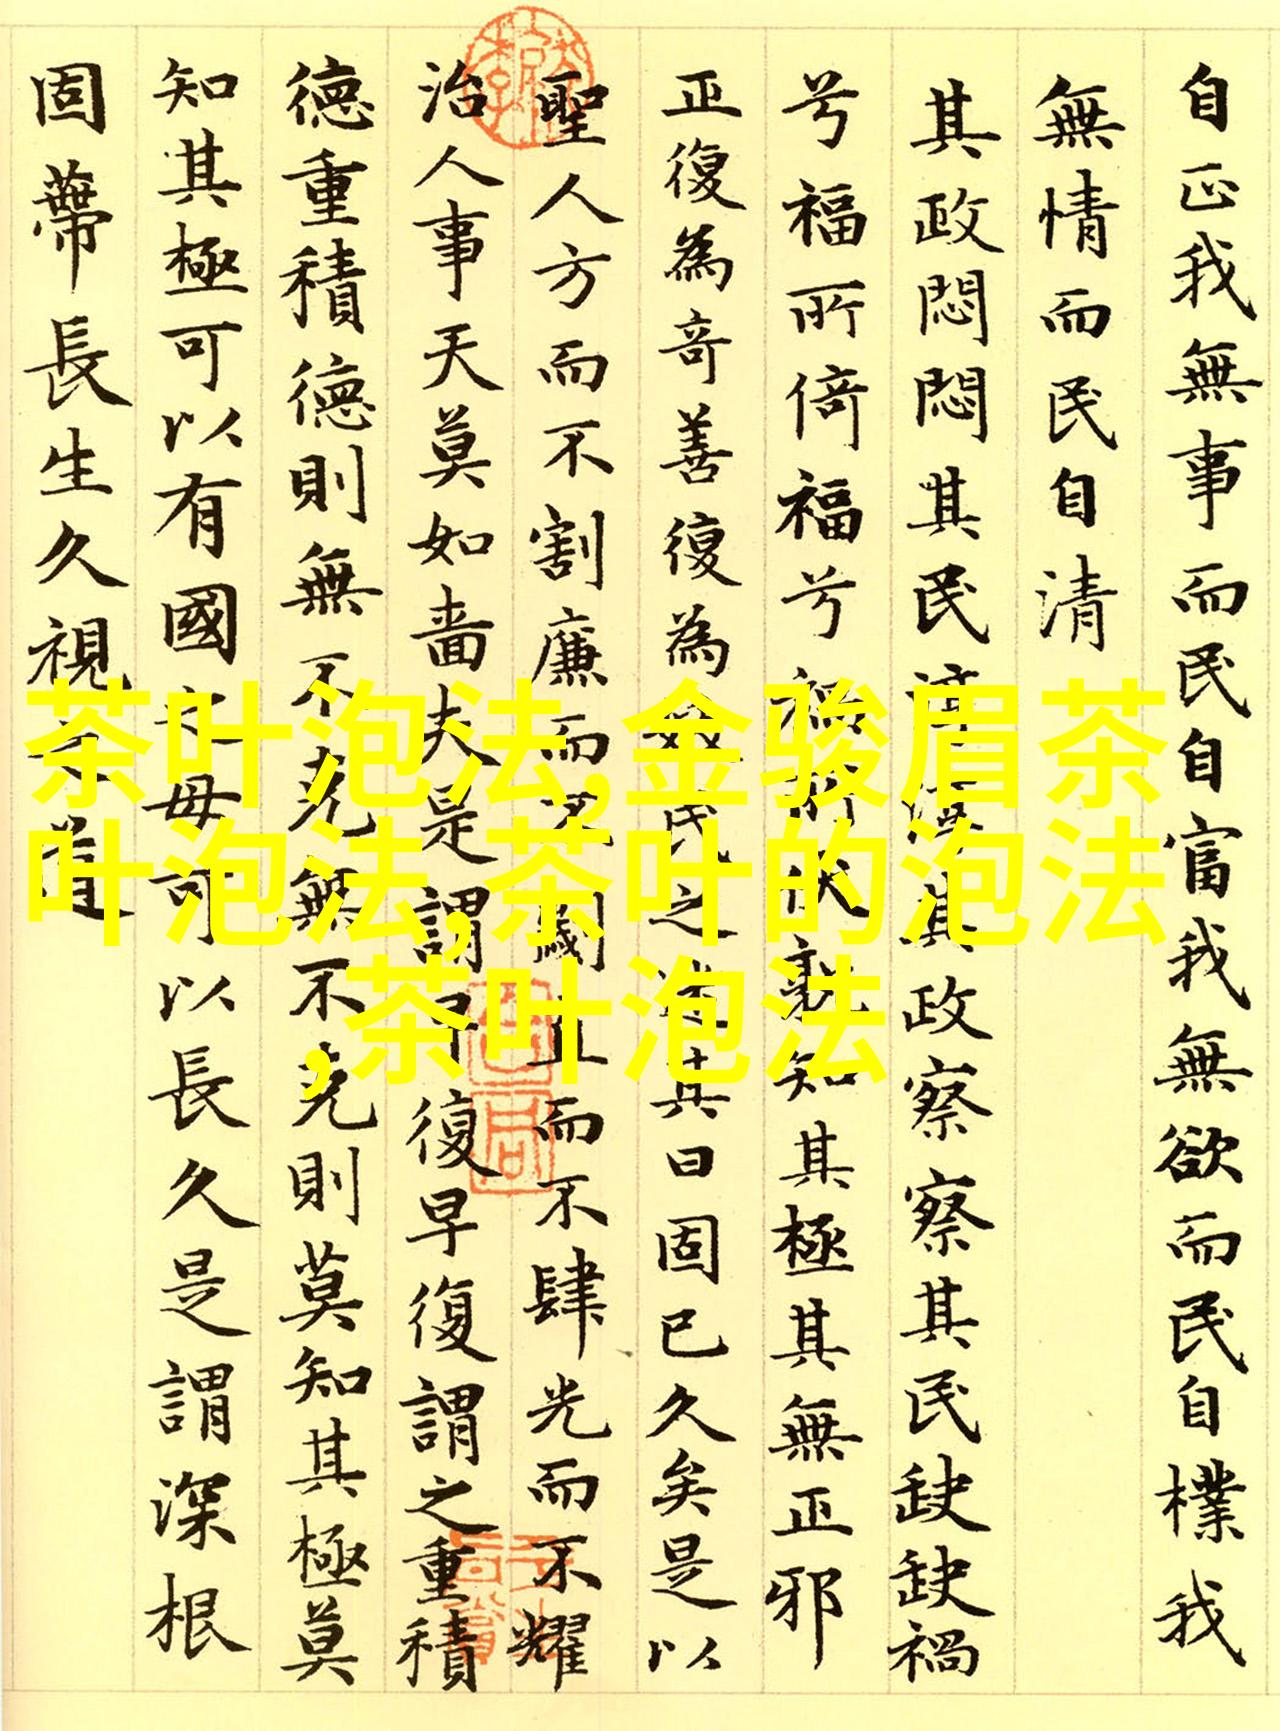 自正我無事而民自富我無欲而民自樸我
無情而民自清
其政悶悶其民諄諄其政察察其民缺缺禍
兮福所倚福兮禍所伏孰知其極其無正邪
正復為奇善復為民之迷其日固已久矣是以
聖人方而不割廉而不劌直而不肆光而不耀
治人事天莫如嗇夫是謂早復早復謂之重積
德重積德則無不克無不克則莫知其極莫
知其極可以有國之母可以長久是謂深根
固蔕長生久視之道
茶叶泡法,金骏眉茶
叶泡法,茶叶的泡法
,茶叶泡法